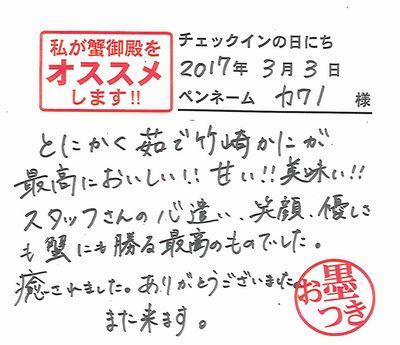 私が蟹御殿を
オススメ
します!!
チェックインの日にち
2017年 3月 3日
ペンネーム カワノ 様
とにかく茹で竹崎かにが
最高においしい!! 甘い!! 美味い!!
スタッフさんの心遣い、笑顔、優しさ
も蟹にも勝る最高のものでした。
癒されました。ありがとうございました。
また来ます。
お墨
つき